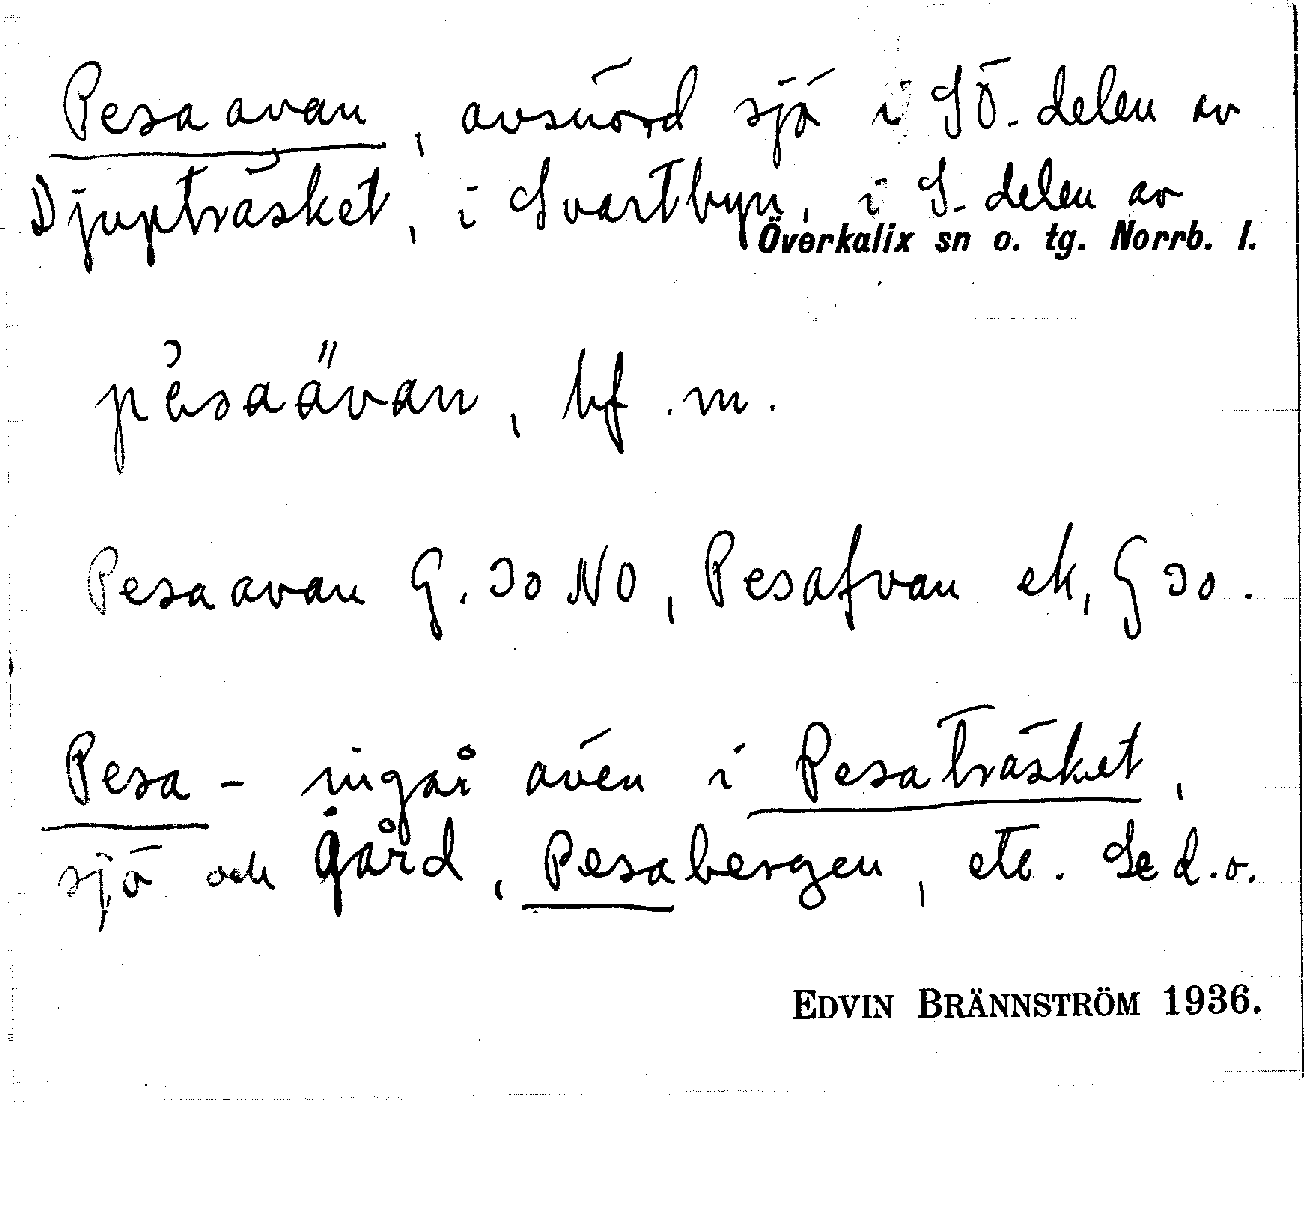 Pesaavan, avsnörd sjö i SÖ. delen av
Djupträsket, i Svartbyn, i S. delen av
Överkalix sn o. tg. Norrb. l.
bf. m.
Pesaavan G. 30 NO, Pesafvan ek, G 30.
Pesa- ingår även i Pesaträsket,
sjö och gård, Pesabergen, etc. Se d.o.
EDVIN BRÄNNSTRÖM 1936.